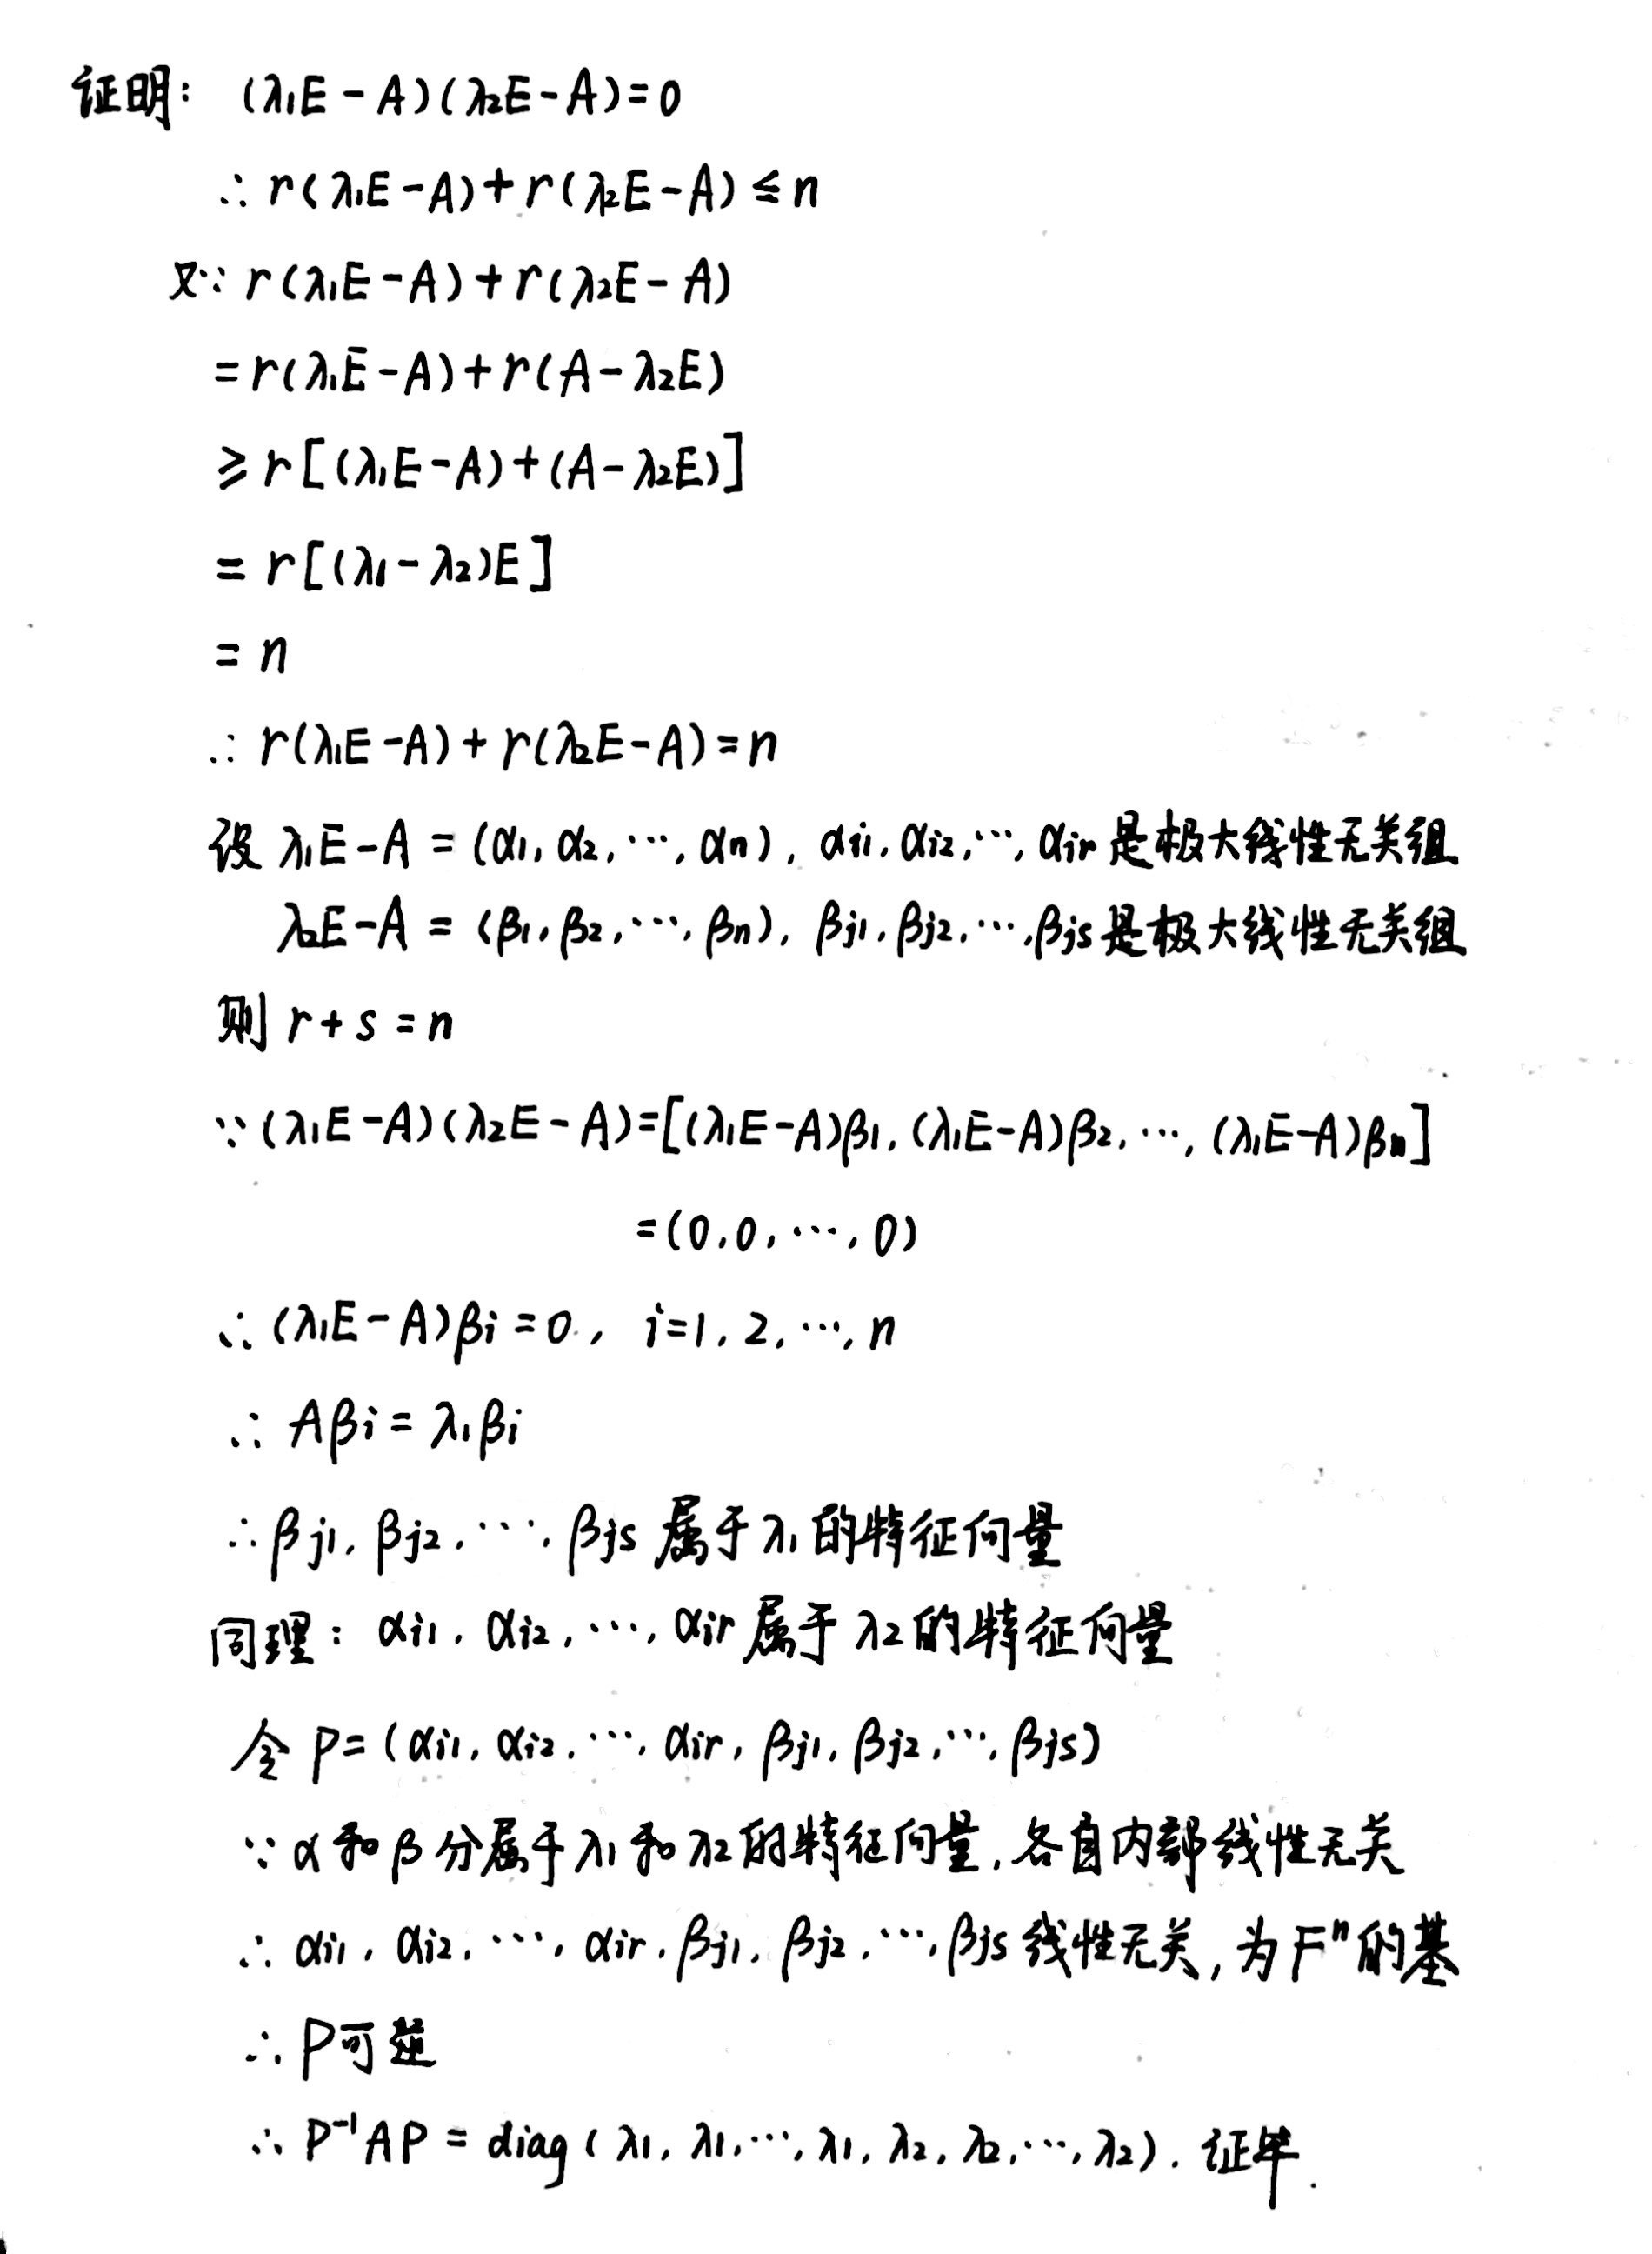 证明: (λ₁E-A)(λ₂E-A)=0
∴ r(λ₁E-A)+r(λ₂E-A)≤n
又∵ r(λ₁E-A)+r(λ₂E-A)
=r(λ₁E-A)+r(A-λ₂E)
≥r[(λ₁E-A)+(A-λ₂E)]
=r[(λ₁-λ₂)E]
=n
∴ r(λ₁E-A)+r(λ₂E-A)=n
设 λ₁E-A=(α₁,α₂,…,αn), αi₁,αi₂,…,αir是极大线性无关组
λ₂E-A=(β₁,β₂,…,βn), βj₁,βj₂,…,βjs是极大线性无关组
则 r+s=n
∵(λ₁E-A)(λ₂E-A)=[(λ₁E-A)β₁,(λ₁E-A)β₂,…,(λ₁E-A)βn]
=(0,0,…,0)
∴(λ₁E-A)βi=0, i=1,2,…,n
∴ Aβi=λ₁βi
∴βj₁,βj₂,…,βjs 属于λ₁的特征向量
同理: αi₁,αi₂,…,αir属于λ₂的特征向量
令 P=(αi₁,αi₂,…,αir,βj₁,βj₂,…,βjs)
∵α和β分属于λ₁和λ₂的特征向量,各自内部线性无关
∴ αi₁,αi₂,…,αir,βj₁,βj₂,…,βjs线性无关,为Fⁿ的基
∴P可逆
∴ P⁻¹AP=diag(λ₁,λ₁,…,λ₁,λ₂,λ₂,…,λ₂). 证毕.